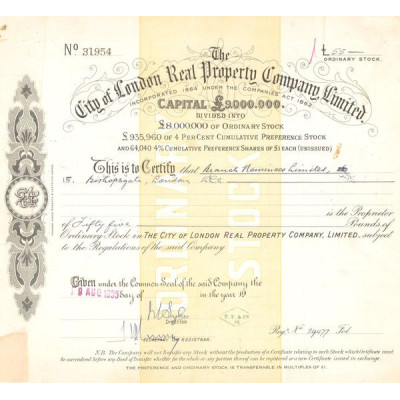 No 31954
£ 55 —
ORDINARY STOCK.
The
City of London Real Property Company, Limited.
INCORPORATED 1864 UNDER THE COMPANIES ACT 1862
CAPITAL £9,000,000.
DIVIDED INTO
£8,000,000 OF ORDINARY STOCK
£935,960 OF 4 PER CENT CUMULATIVE PREFERENCE STOCK
AND 64,040 4% CUMULATIVE PREFERENCE SHARES OF £1 EACH (UNISSUED)
This is to Certify that Branch Nominees Limited,
15, Bishopsgate, London
is the Proprietor
of Fifty five Pounds of
Ordinary Stock in THE CITY OF LONDON REAL PROPERTY COMPANY, LIMITED, subject
to the Regulations of the said Company
ORDINARY STOCK
Given under the Common Seal of the said Company the
day of in the year 19
9 AUG 1955
DIRECTOR
REGISTRAR
Regd. No 29477 Fol
N.B. The Company will not transfer any Stock without the production of a Certificate relating to such Stock which Certificate must
be surrendered before any Deed of transfer whether for the whole or any portion thereof can be registered or a new Certificate issued in exchange.
THE PREFERENCE AND ORDINARY STOCK IS TRANSFERABLE IN MULTIPLES OF £1.